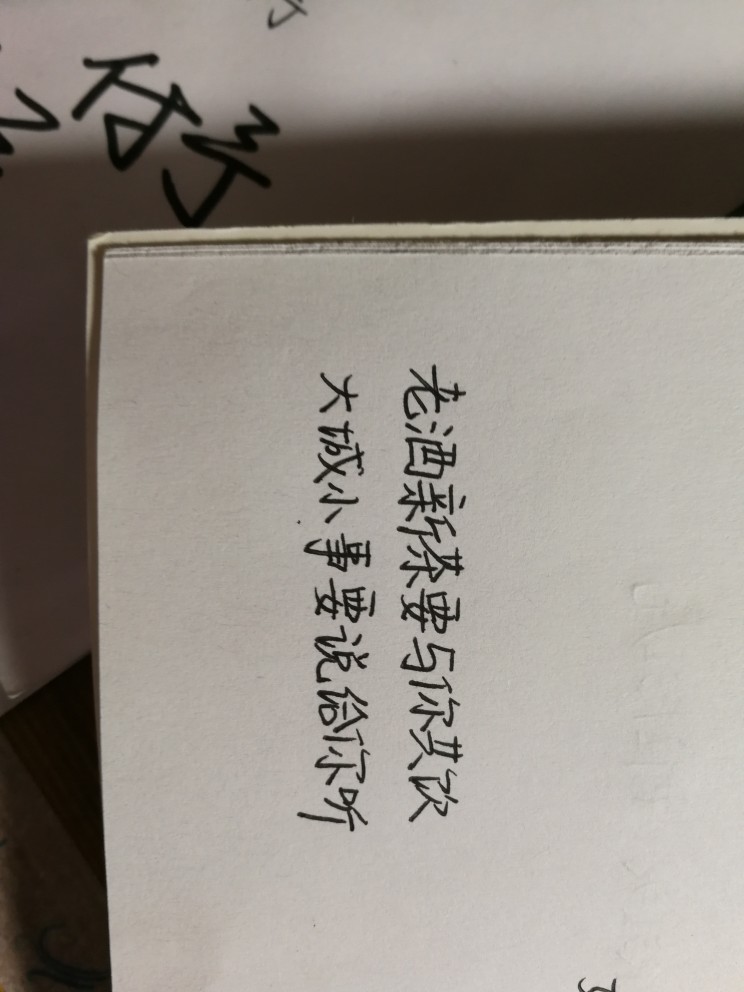 老酒新茶要与你共饮
大城小事要说给你听